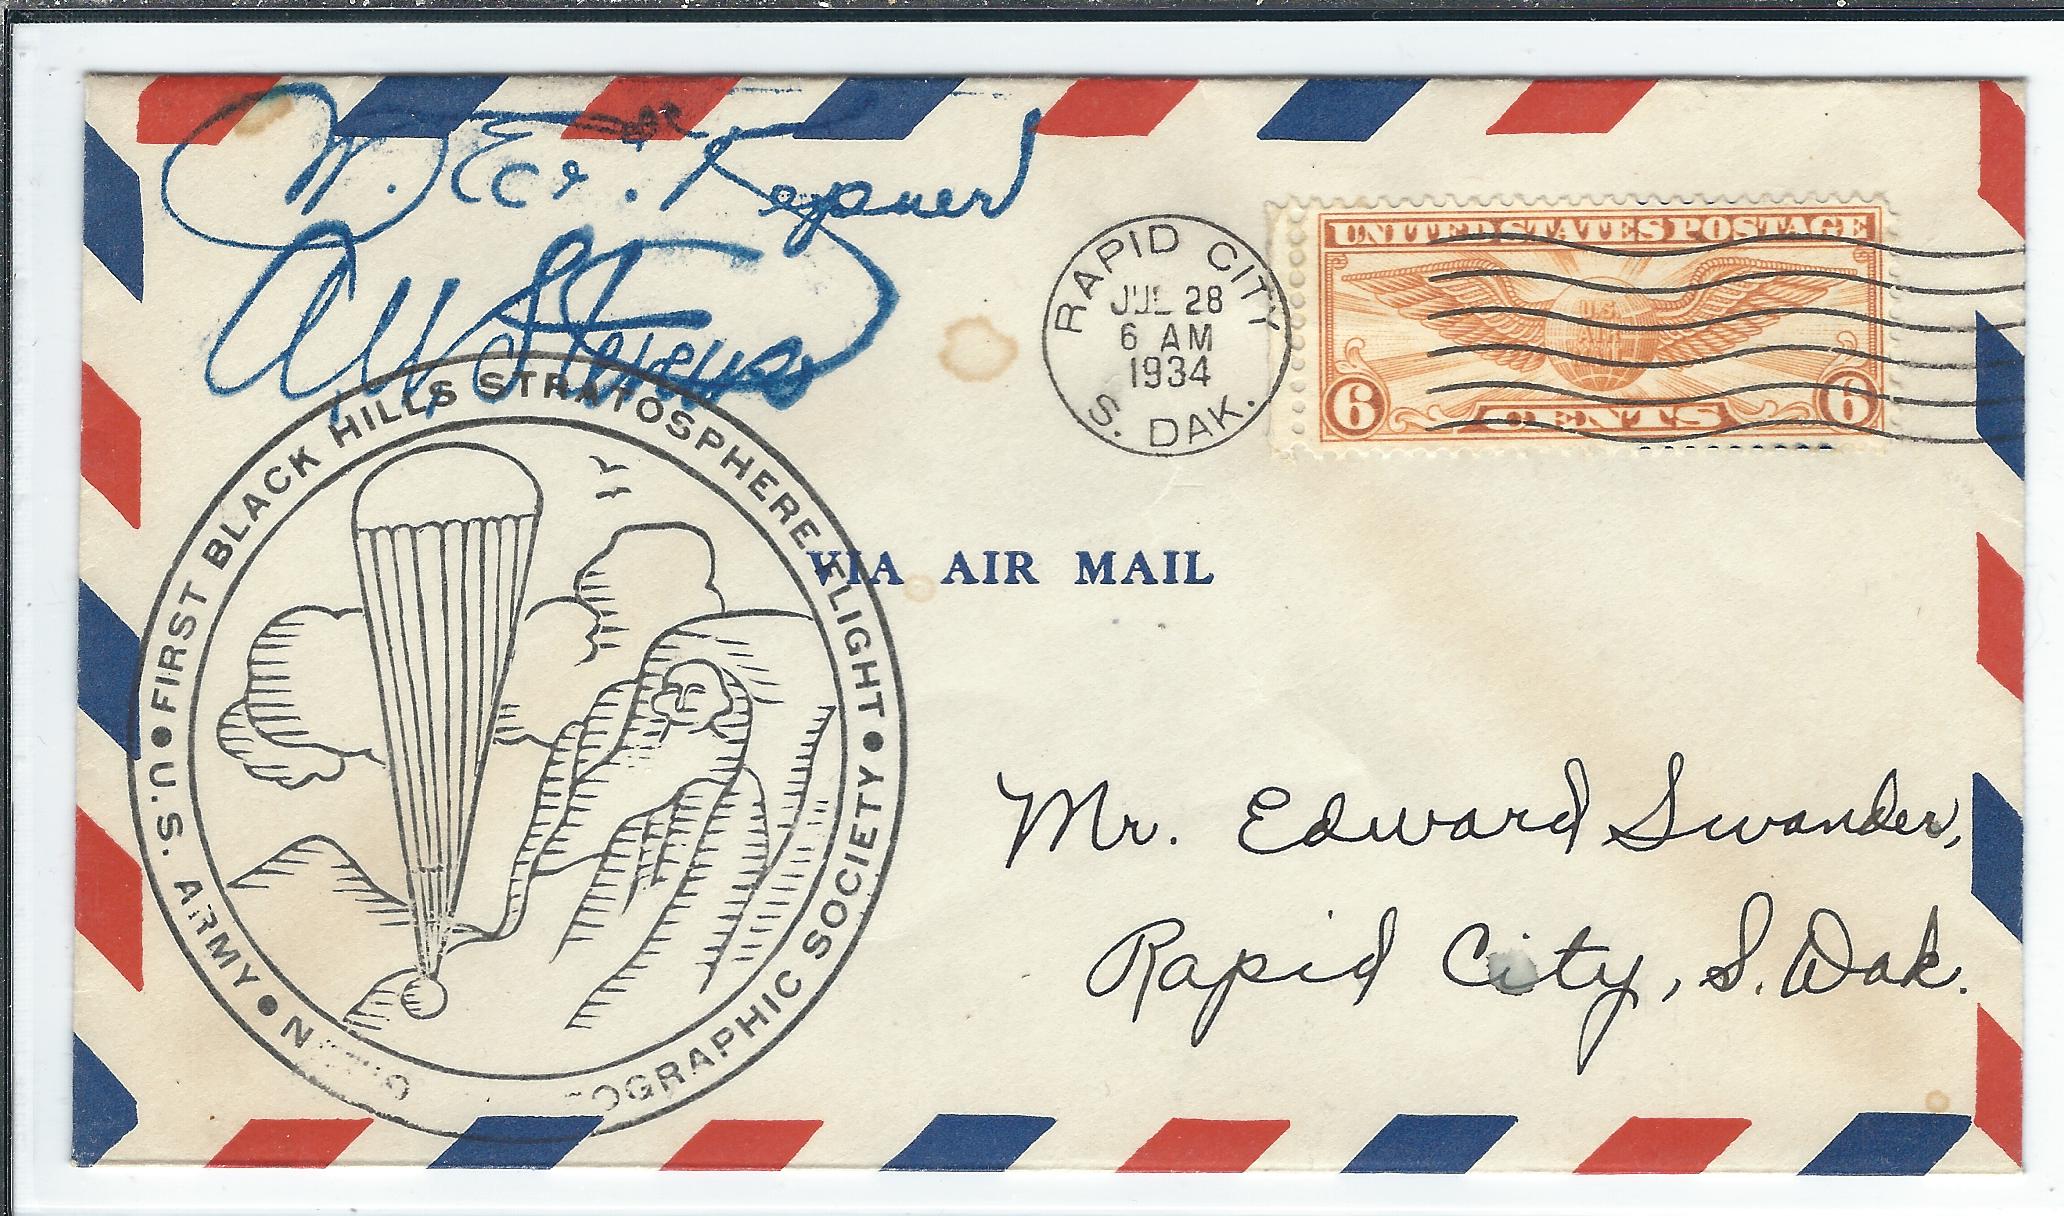 W. E. Kepner
A W Stevens
RAPID CITY
JUL 28
6 AM
1934
S. DAK.
UNITED STATES POSTAGE
U.S.
AIR
MAIL
6 CENTS 6
VIA AIR MAIL
FIRST BLACK HILLS STRATOSPHERE FLIGHT
U.S. ARMY • OGRAPHIC SOCIETY
Mr. Edward Swander,
Rapid City, S. Dak.